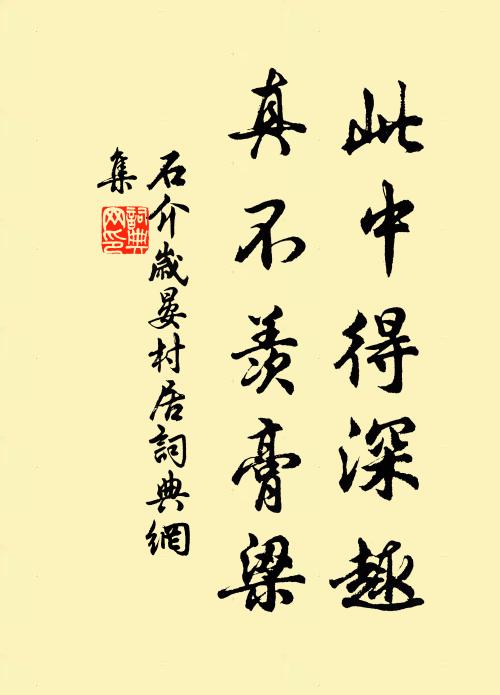 此中得深趣
真不羨膏粱
石介歲晏村居詞典網
集
詞典
网印